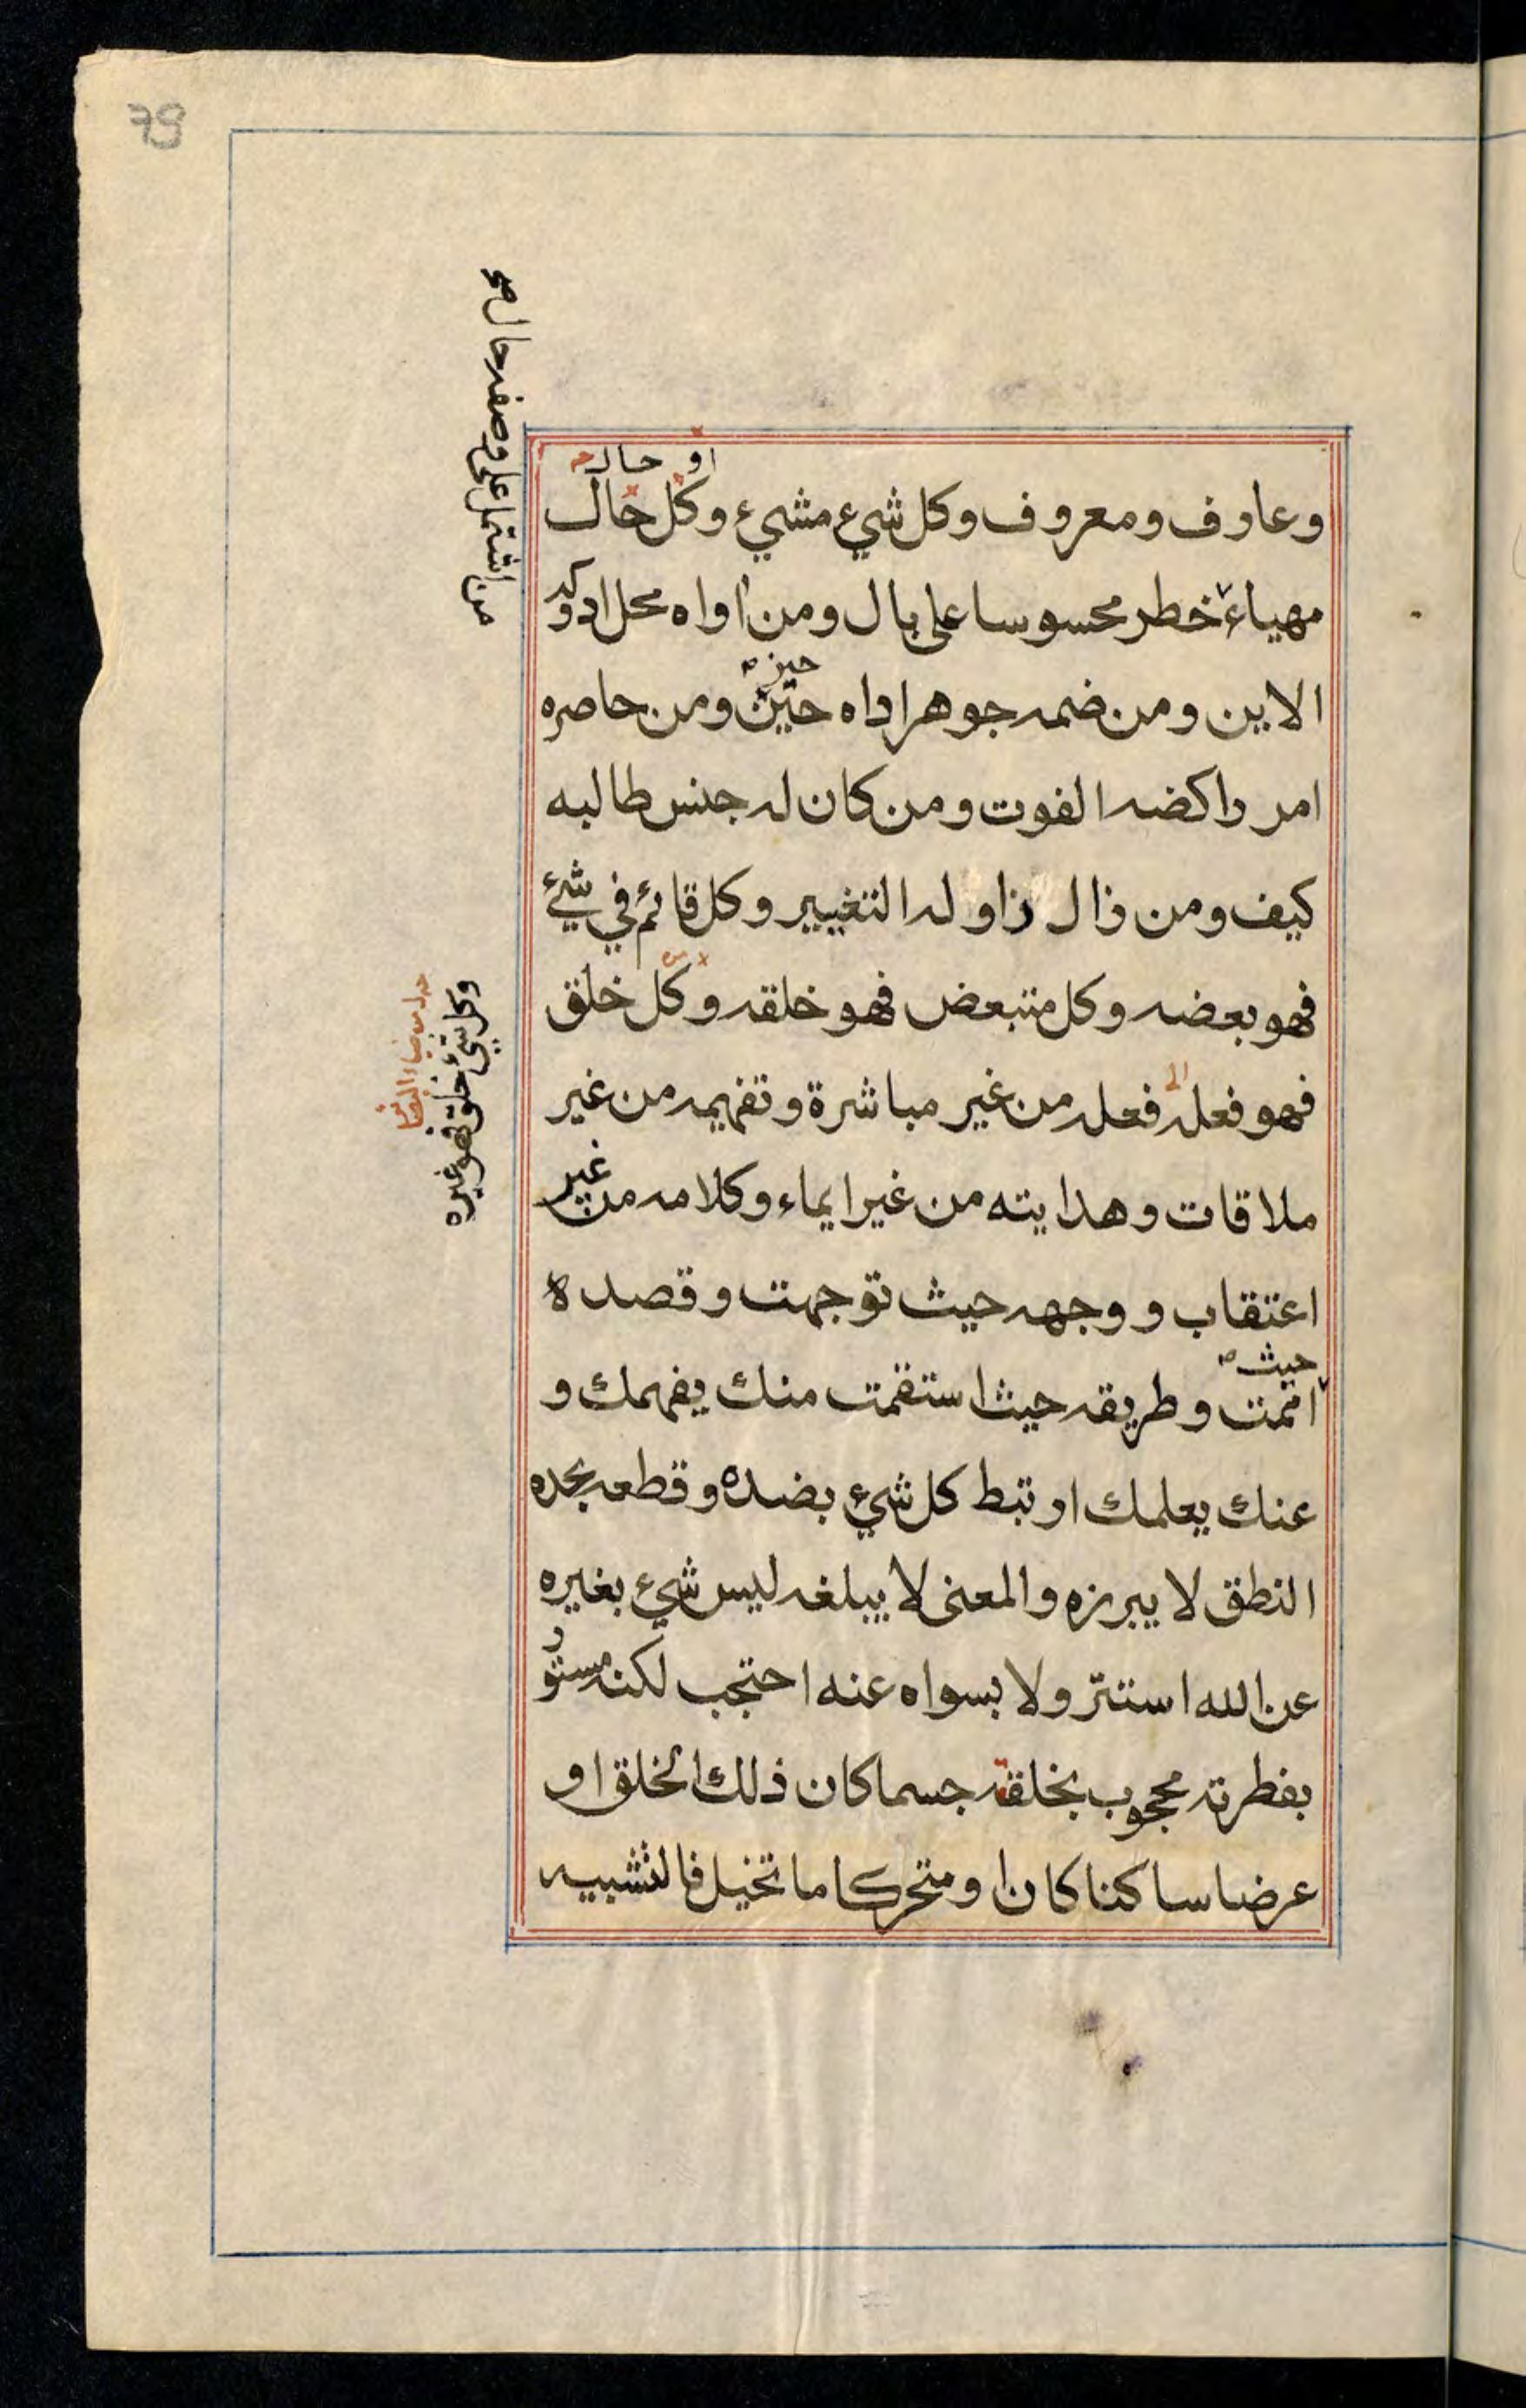 79
او حال
وعارف ومعروف وكل شيء مشيء وكل حال
مهياء خطر محسوسا على بال ومن اواه محل ادركه
حيز
الاين ومن ضمه جوهر اداه حيز ومن حاصره
امر راكضه الفوت ومن كان له جنس طالبه
كيف ومن زال زاوله التغيير وكل قائم في شيئ
فهو بعضه وكل متبعض فهو خلقه وكل خلق
فهو فعله فعله من غير مباشرة وتفهيمه من غير
ملاقات وهدايته من غير ايماء وكلامه من غير
اعتقاب ووجهه حيث توجهت وقصده
حيث
اممت وطريقه حيث استقمت منك يفهمك و
عنك يعلمك ارتبط كل شيء بضده وقطعه بحده
النطق لا يبرزه والمعنى لا يبلغه ليس شيء بغيره
عن الله استتر ولا بسواه عنه احتجب لكنه مستور
بفطرته محجوب بخلقه جسما كان ذلك الخلق او
عرضا ساكنا كان او متحركا ما تخيل فالتشبيه
من اشتمل على وصفه حال صح
وكل شيء خلق فهو غيره